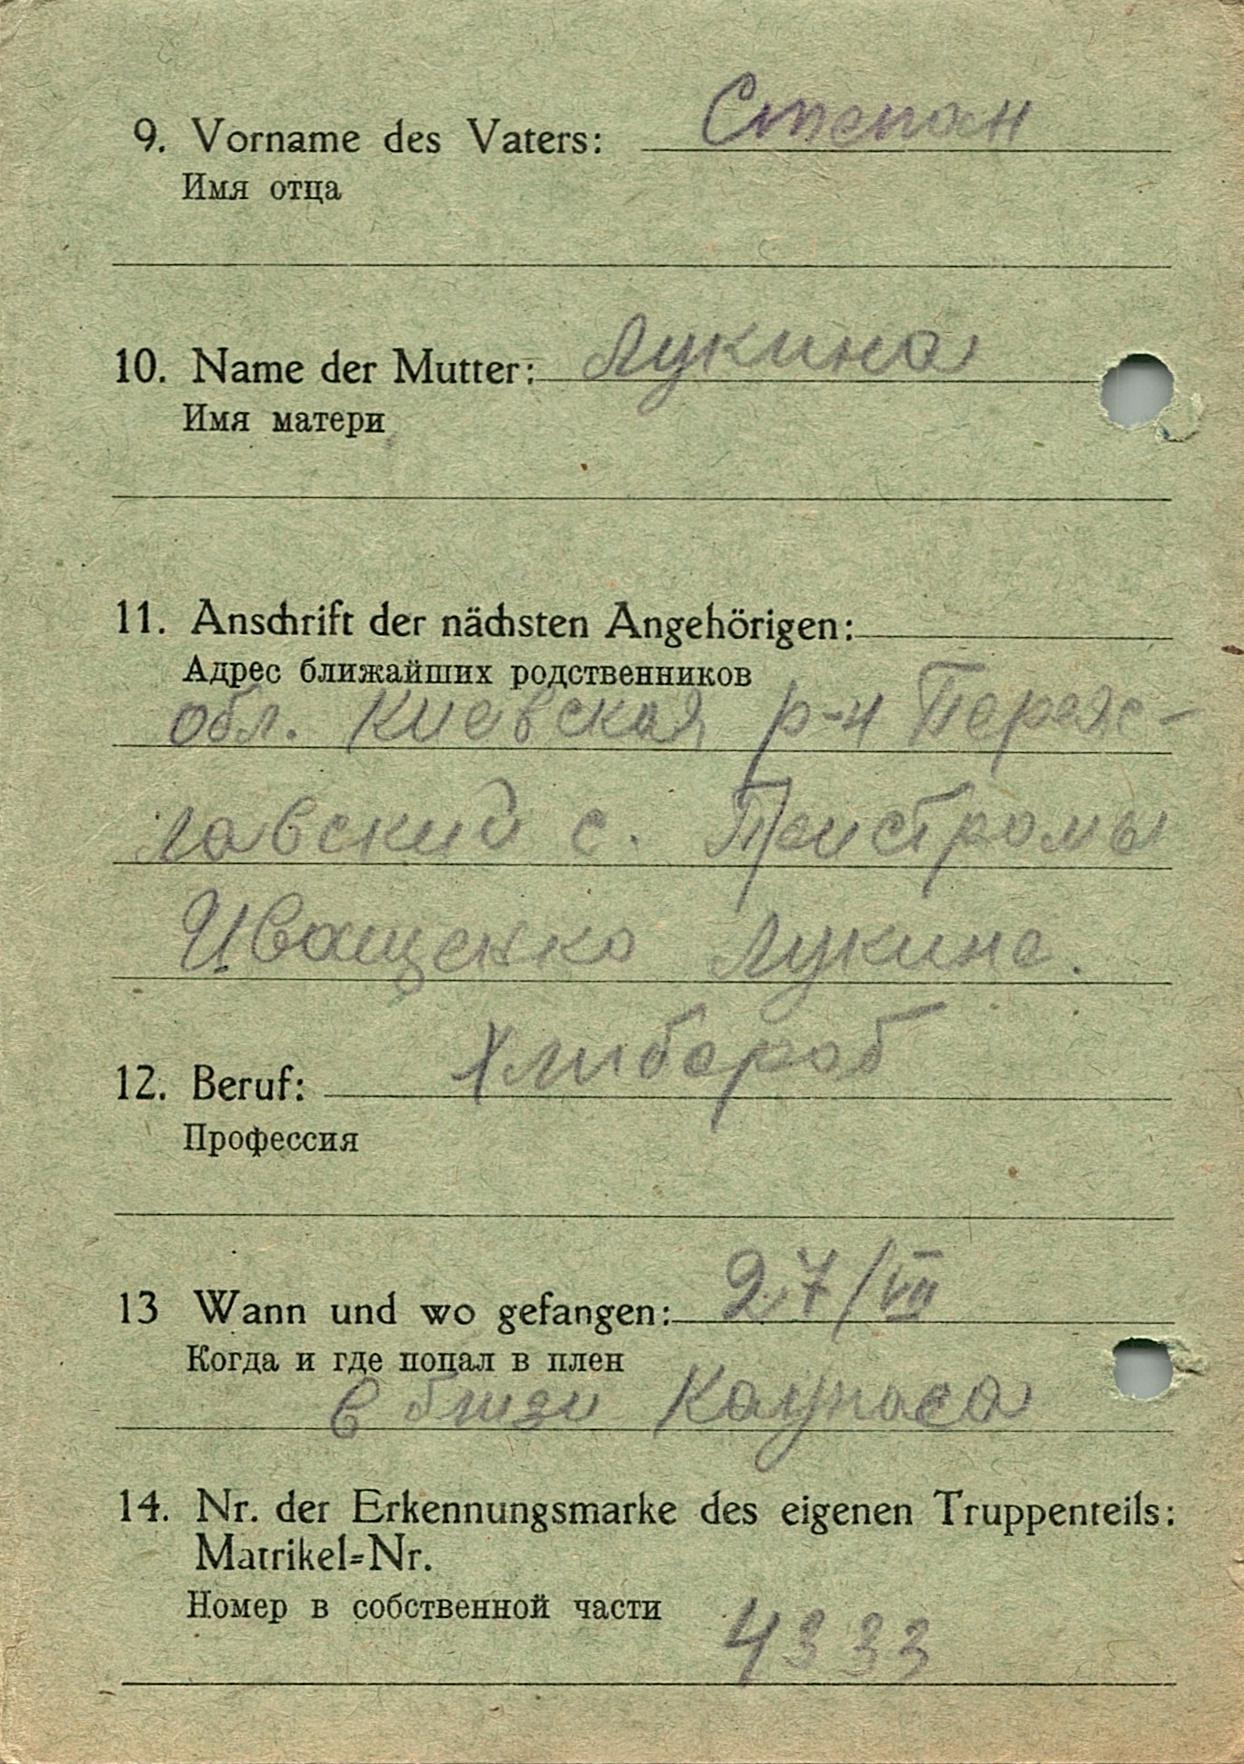 9. Vorname des Vaters: Степан
Имя отца
10. Name der Mutter: Лукина
Имя матери
11. Anschrift der nächsten Angehörigen:
Адрес ближайших родственников
обл. Киевская р-н Переяс-
лавский с. Пристромы
Иващенко Лукина.
12. Beruf: Хлибороб
Профессия
13 Wann und wo gefangen: 27/VII
Когда и где попал в плен
в близи Каунаса
14. Nr. der Erkennungsmarke des eigenen Truppenteils:
Matrikel-Nr.
Номер в собственной части
4333